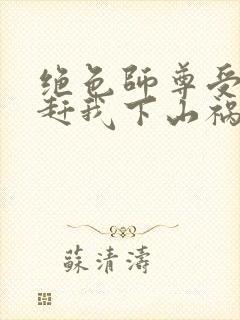 绝色師尊受
赶我下山禍
蘇清濤